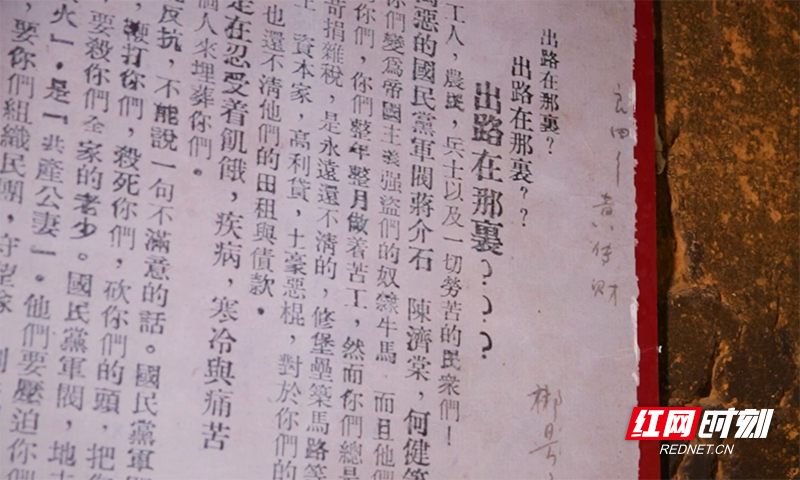 出路在那裏？
出路在那裏？？
出路在那裏？？？
工人，農民，兵士以及一切勞苦的民衆們！
惡的國民黨軍閥蔣介石 陳濟棠，何健等
們變爲帝國主義强盜們的奴隸牛馬 而且他們
你們，你們整年整月做着苦工，然而你們總是
苛捐雜稅，是永遠還不清的，修堡壘築馬路等
資本家，高利貸，土豪惡棍，對於你們的
也還不清他們的田租與債款．
是在忍受着飢餓，疾病，寒冷與痛苦
個人來埋葬你們．
反抗，不能說一句不滿意的話。國民黨軍
，鞭打你們，殺死你們，砍你們的頭，把
，要殺你們全家的老少。國民黨軍閥，地
火」．是「共產公妻」．他們要壓迫你們
，要你們組織民團，守望隊
红网时刻
REDNET.CN